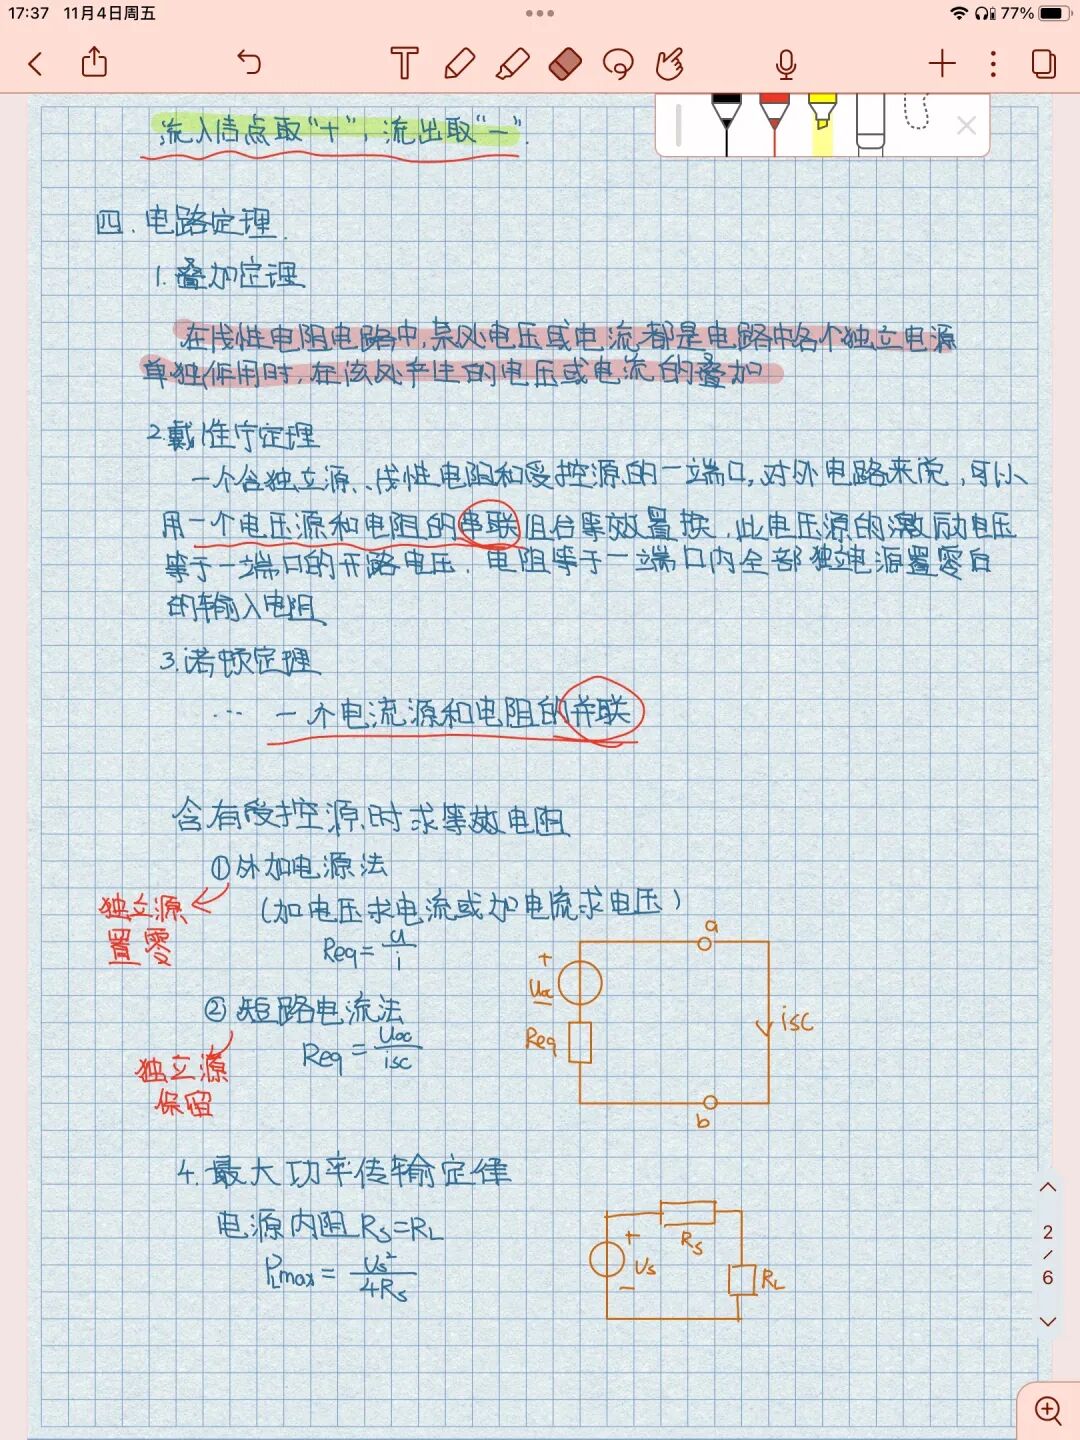 17:37 11月4日周五
77%
流入结点取“+”，流出取“−”.
四.电路定理.
1.叠加定理
在线性电阻电路中,某处电压或电流都是电路中各个独立电源
单独作用时,在该处产生的电压或电流的叠加
2.戴维宁定理
一个含独立源、线性电阻和受控源的一端口,对外电路来说,可以
用一个电压源和电阻的串联组合等效置换,此电压源的激励电压
等于一端口的开路电压.电阻等于一端口内全部独立电源置零后
的输入电阻
3.诺顿定理
… 一个电流源和电阻的并联
含有受控源时求等效电阻
①外加电源法
独立源
置零
(加电压求电流或加电流求电压)
Req=u/i
a
+
Uoc
−
Req
isc
b
②短路电流法
Req=Uoc/isc
独立源
保留
4.最大功率传输定律
电源内阻Rs=RL
PLmax=Us²/4Rs
Rs
+
Us
−
RL
2
/
6